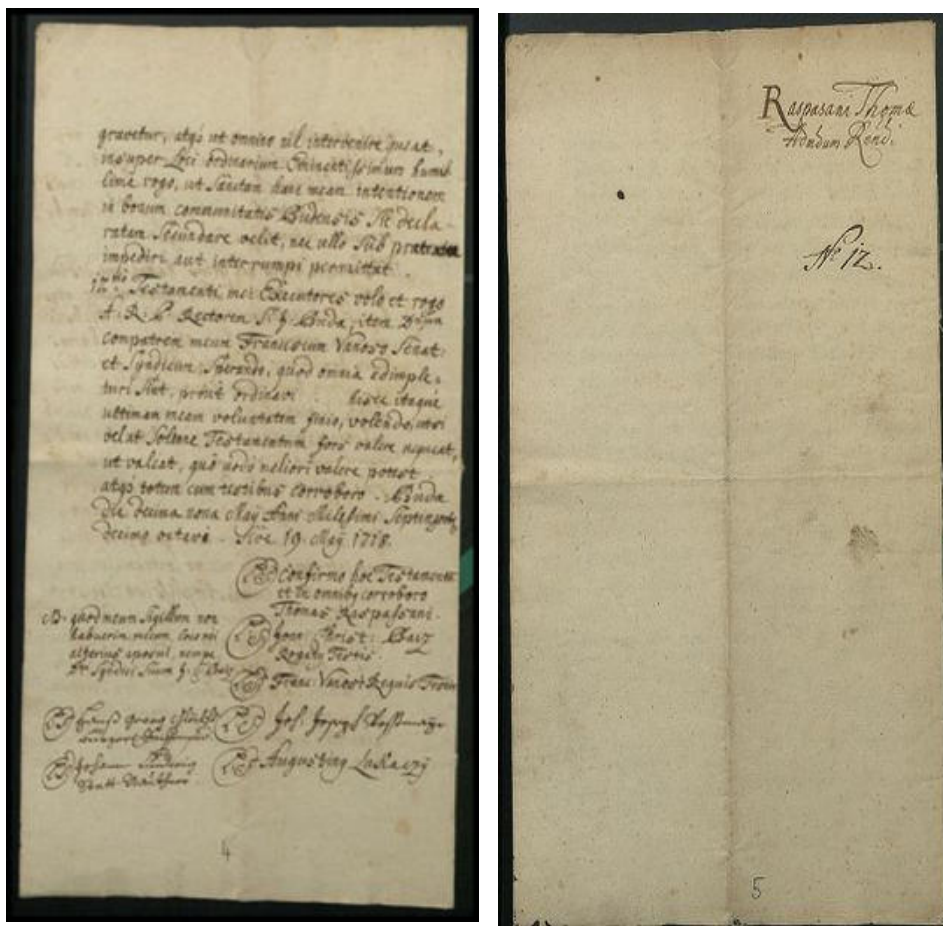 gravetur, atq3 ut omnino nil intervenire queat,
insuper Loci ordinarium Eminentissimum humil
lime rogo, ut Sanctam hanc meam intentionem
in bonum communitatis Budensis sic decla-
ratam secundare velit, nec ullo sub prætextu
impediri aut interrumpi permittat.
12mo Testamenti mei Executores volo et rogo
A. R. P. Rectorem S. J. Budæ, item Dnum
compatrem meum Franciscum Vanossi Senat:
et Syndicum: Sperando, quod omnia adimple-
turi sint, prout ordinavi hisce itaque
ultimam meam voluntatem finio, volendo, uti
velut Solene Testamentum fors valere nequeat,
ut valeat, quo modo meliori valere potest
atq3 totum cum testibus corroboro. Budæ
die decima nona Maÿ Anni Millesimi Septingente
decimo octavi. Sive 19 Maÿ 1718.
Confirmo hoc Testamentum
et in omnibus corroboro
Thomas Raspassani.
NB. quod meum Sigillum non
habuerim mecum,
alterius apposui, nempe
Dni Syndici
LS Joan: Christ:
Rogatus Testis.
LS Franc: Vanossi Requis Testis
LS Joh. Joseph
LS Augustin
LS Johann Ludwig
4
Raspasani Thomæ
Rend.
No 12.
5